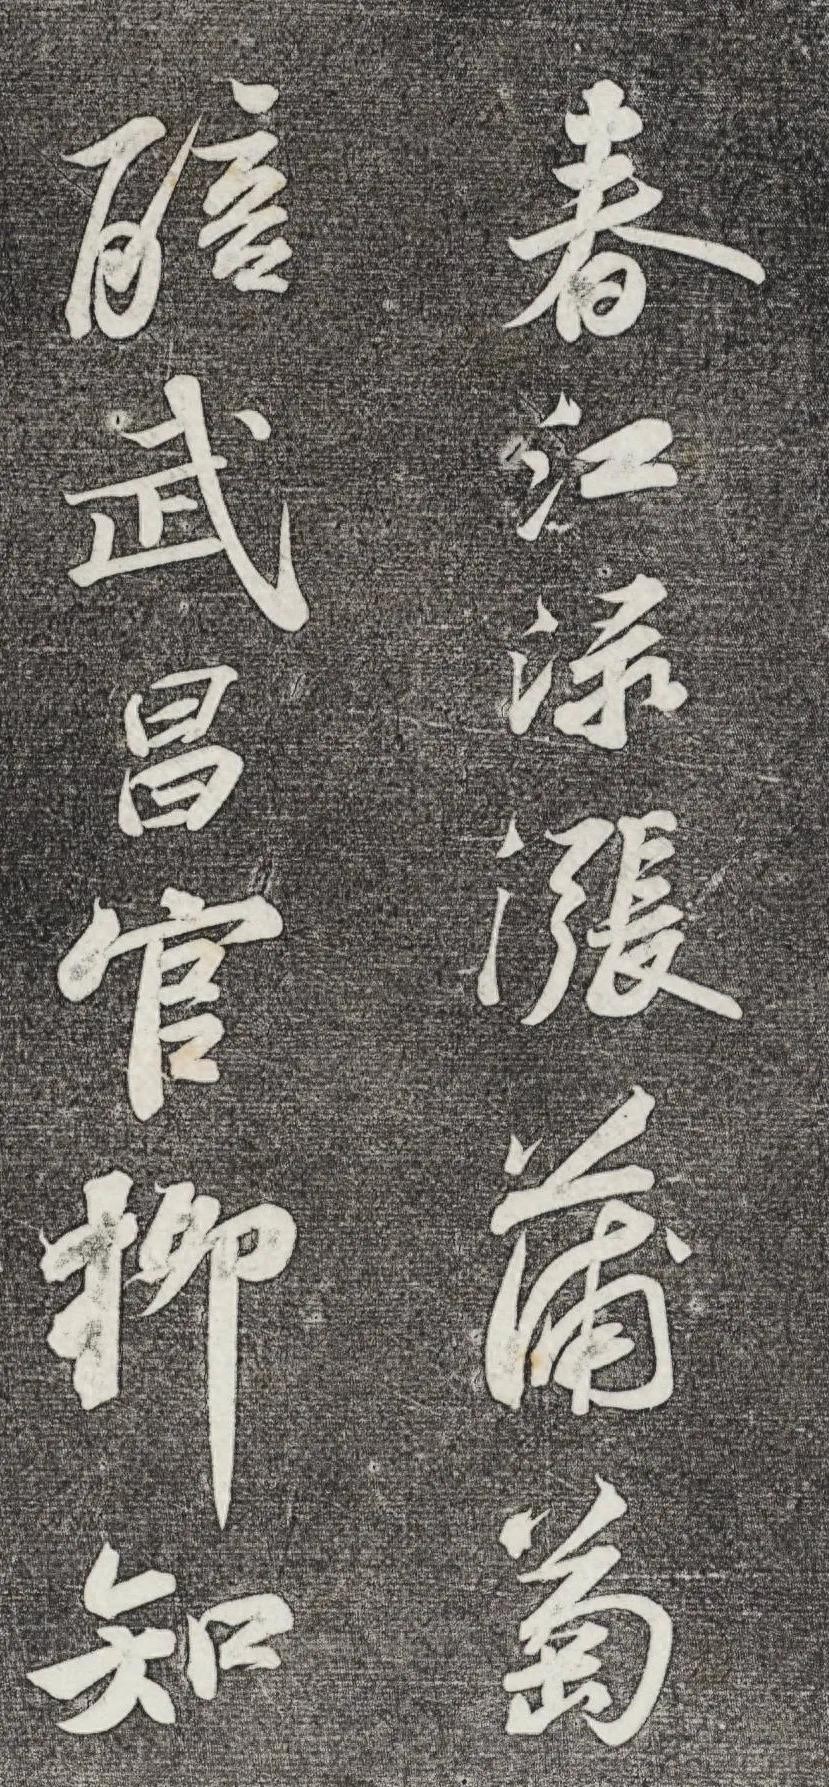 春江渌漲蒲萄
醅武昌官柳知